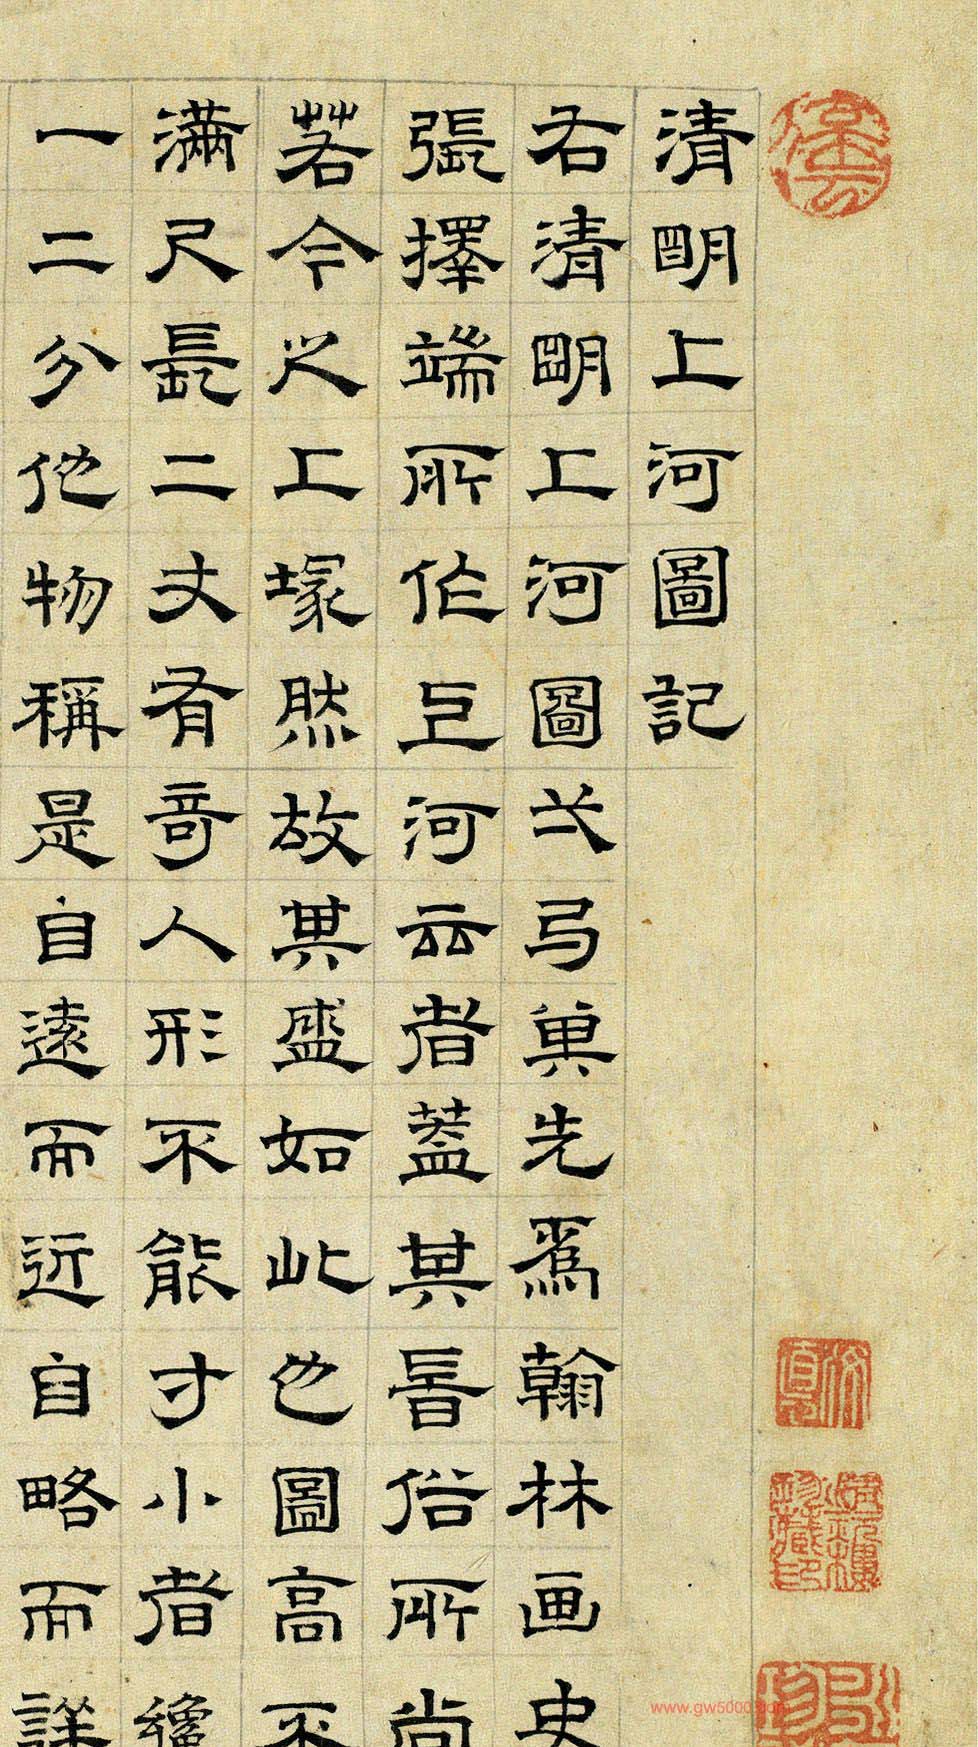 清明上河圖記
右清明上河圖一弓宋先爲翰林画史
張擇端所作上河云者蓋其時俗所尚
若今之上塚然故其盛如此也圖高不
滿尺長二丈有奇人形不能寸小者纔
一二分他物稱是自遠而近自略而詳
www.gw5000.com